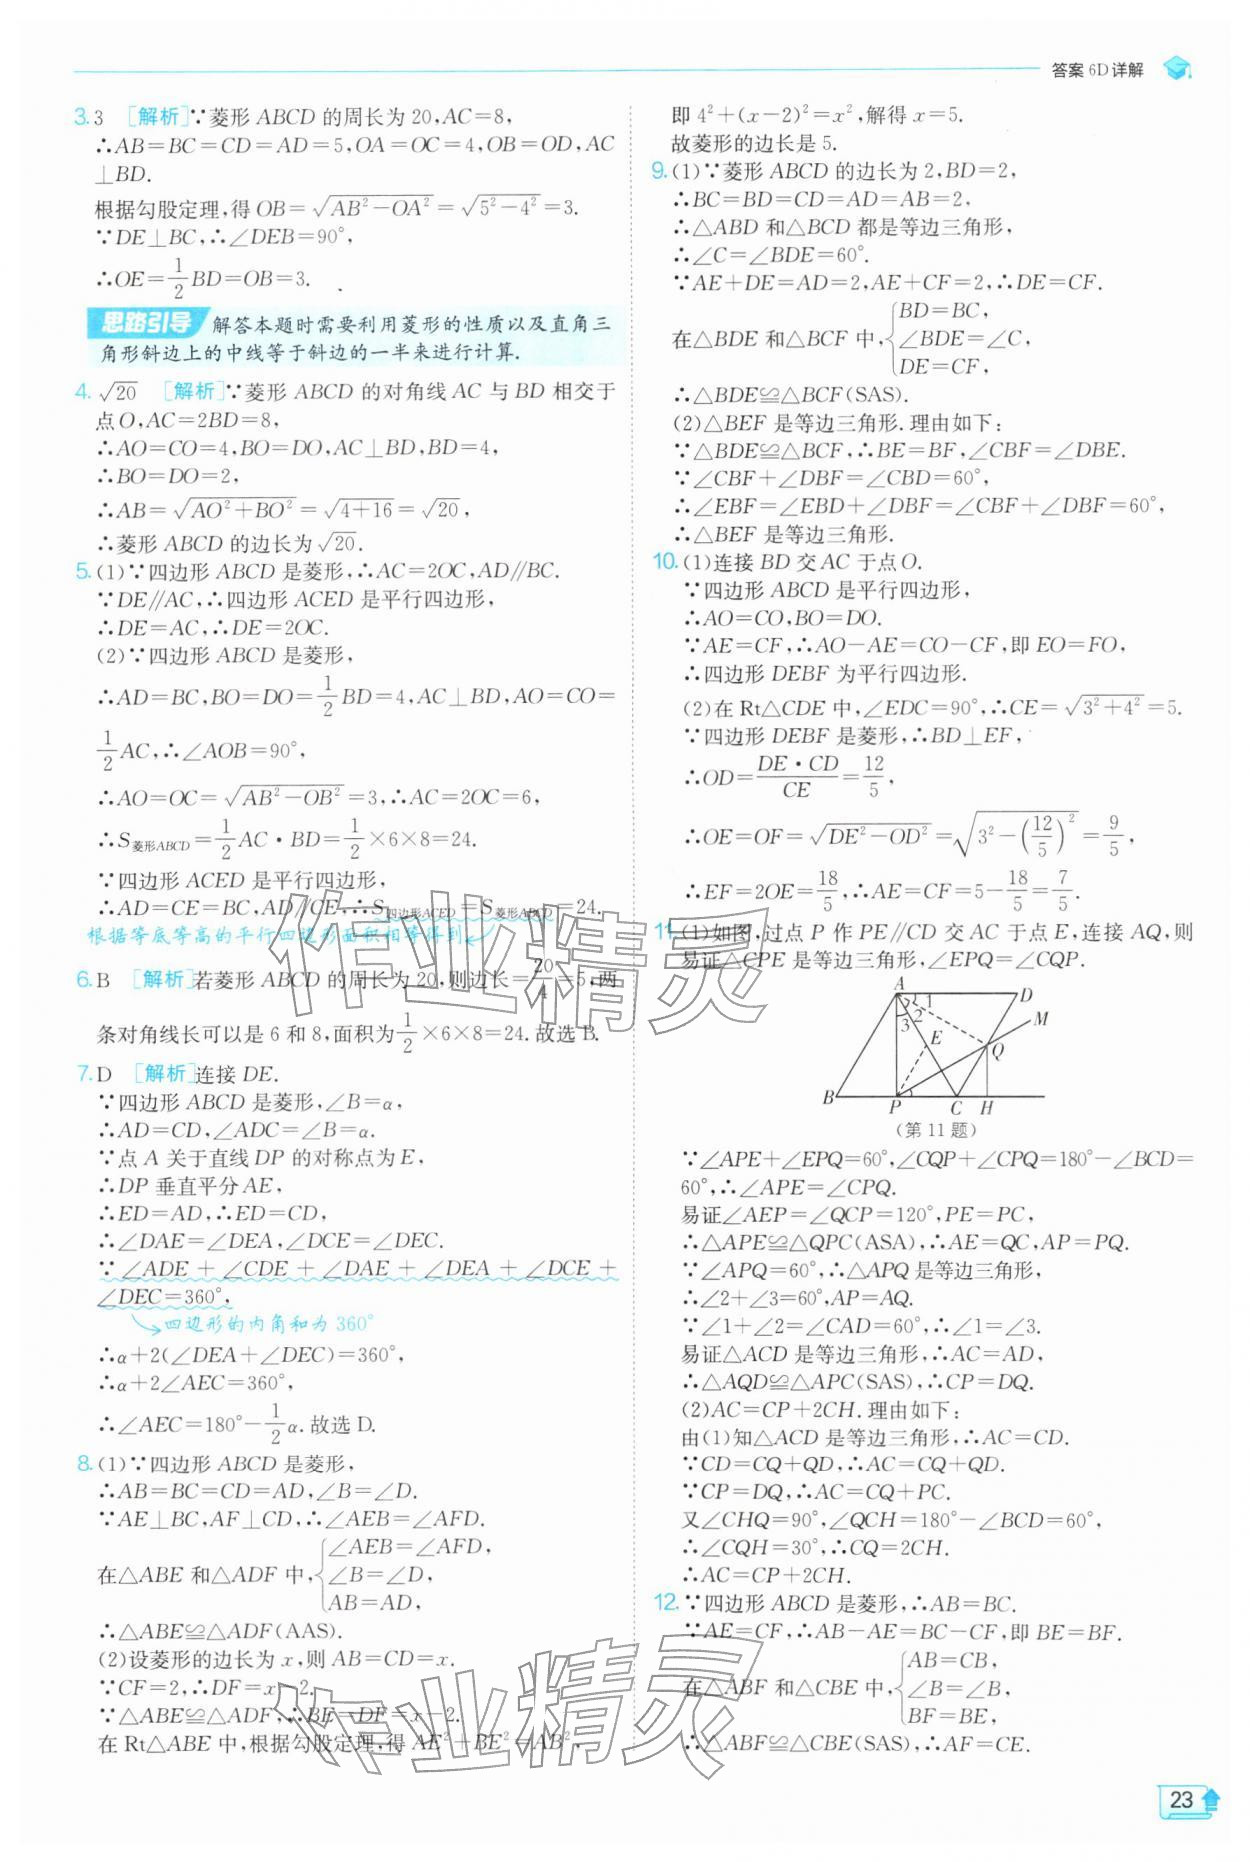 答案 6D详解
3. 3 [解析]∵菱形 ABCD 的周长为 20,AC=8,
∴AB=BC=CD=AD=5,OA=OC=4,OB=OD,AC
⊥BD.
根据勾股定理,得 OB=√(AB²-OA²)=√(5²-4²)=3.
∵DE⊥BC,∴∠DEB=90°,
∴OE=1/2BD=OB=3.
思路引导 解答本题时需要利用菱形的性质以及直角三
角形斜边上的中线等于斜边的一半来进行计算.
4. √20 [解析]∵菱形 ABCD 的对角线 AC 与 BD 相交于
点 O,AC=2BD=8,
∴AO=CO=4,BO=DO,AC⊥BD,BD=4,
∴BO=DO=2,
∴AB=√(AO²+BO²)=√(4+16)=√20,
∴菱形 ABCD 的边长为√20.
5. (1)∵四边形 ABCD 是菱形,∴AC=2OC,AD∥BC.
∵DE∥AC,∴四边形 ACED 是平行四边形,
∴DE=AC,∴DE=2OC.
(2)∵四边形 ABCD 是菱形,
∴AD=BC,BO=DO=1/2BD=4,AC⊥BD,AO=CO=
1/2AC,∴∠AOB=90°,
∴AO=OC=√(AB²-OB²)=3,∴AC=2OC=6,
∴S菱形ABCD=1/2AC·BD=1/2×6×8=24.
∵四边形 ACED 是平行四边形,
∴AD=CE=BC,AD∥CE,∴S四边形ACED=S菱形ABCD=24.
根据等底等高的平行四边形面积相等得到
6. B [解析]若菱形 ABCD 的周长为 20,则边长=20/4=5,两
条对角线长可以是 6 和 8,面积为1/2×6×8=24.故选 B.
7. D [解析]连接 DE.
∵四边形 ABCD 是菱形,∠B=α,
∴AD=CD,∠ADC=∠B=α.
∵点 A 关于直线 DP 的对称点为 E,
∴DP 垂直平分 AE,
∴ED=AD,∴ED=CD,
∴∠DAE=∠DEA,∠DCE=∠DEC.
∵∠ADE+∠CDE+∠DAE+∠DEA+∠DCE+
∠DEC=360°,
四边形的内角和为 360°
∴α+2(∠DEA+∠DEC)=360°,
∴α+2∠AEC=360°,
∴∠AEC=180°-1/2α.故选 D.
8. (1)∵四边形 ABCD 是菱形,
∴AB=BC=CD=AD,∠B=∠D.
∵AE⊥BC,AF⊥CD,∴∠AEB=∠AFD.
在△ABE 和△ADF 中,{∠AEB=∠AFD,
∠B=∠D,
AB=AD,
∴△ABE≌△ADF(AAS).
(2)设菱形的边长为 x,则 AB=CD=x.
∵CF=2,∴DF=x-2.
∵△ABE≌△ADF,∴BE=DF=x-2.
在 Rt△ABE 中,根据勾股定理,得 AE²+BE²=AB²,
即 4²+(x-2)²=x²,解得 x=5.
故菱形的边长是 5.
9. (1)∵菱形 ABCD 的边长为 2,BD=2,
∴BC=BD=CD=AD=AB=2,
∴△ABD 和△BCD 都是等边三角形,
∴∠C=∠BDE=60°.
∵AE+DE=AD=2,AE+CF=2,∴DE=CF.
在△BDE 和△BCF 中,{BD=BC,
∠BDE=∠C,
DE=CF,
∴△BDE≌△BCF(SAS).
(2)△BEF 是等边三角形.理由如下:
∵△BDE≌△BCF,∴BE=BF,∠CBF=∠DBE.
∵∠CBF+∠DBF=∠CBD=60°,
∴∠EBF=∠EBD+∠DBF=∠CBF+∠DBF=60°,
∴△BEF 是等边三角形.
10. (1)连接 BD 交 AC 于点 O.
∵四边形 ABCD 是平行四边形,
∴AO=CO,BO=DO.
∵AE=CF,∴AO-AE=CO-CF,即 EO=FO,
∴四边形 DEBF 为平行四边形.
(2)在 Rt△CDE 中,∠EDC=90°,∴CE=√(3²+4²)=5.
∵四边形 DEBF 是菱形,∴BD⊥EF,
∴OD=DE·CD/CE=12/5,
∴OE=OF=√(DE²-OD²)=√(3²-(12/5)²)=9/5,
∴EF=2OE=18/5,∴AE=CF=5-18/5=7/5.
11. (1)如图,过点 P 作 PE∥CD 交 AC 于点 E,连接 AQ,则
易证△CPE 是等边三角形,∠EPQ=∠CQP.
A D M 1 2 3 E Q B P C H
(第 11 题)
∵∠APE+∠EPQ=60°,∠CQP+∠CPQ=180°-∠BCD=
60°,∴∠APE=∠CPQ.
易证∠AEP=∠QCP=120°,PE=PC,
∴△APE≌△QPC(ASA),∴AE=QC,AP=PQ.
∵∠APQ=60°,∴△APQ 是等边三角形,
∴∠2+∠3=60°,AP=AQ.
∵∠1+∠2=∠CAD=60°,∴∠1=∠3.
易证△ACD 是等边三角形,∴AC=AD,
∴△AQD≌△APC(SAS),∴CP=DQ.
(2)AC=CP+2CH.理由如下:
由(1)知△ACD 是等边三角形,∴AC=CD.
∵CD=CQ+QD,∴AC=CQ+QD.
∵CP=DQ,∴AC=CQ+PC.
又∠CHQ=90°,∠QCH=180°-∠BCD=60°,
∴∠CQH=30°,∴CQ=2CH.
∴AC=CP+2CH.
12. ∵四边形 ABCD 是菱形,∴AB=BC.
∵AE=CF,∴AB-AE=BC-CF,即 BE=BF.
在△ABF 和△CBE 中,{AB=CB,
∠B=∠B,
BF=BE,
∴△ABF≌△CBE(SAS),∴AF=CE.
作业精灵
作业精灵
23